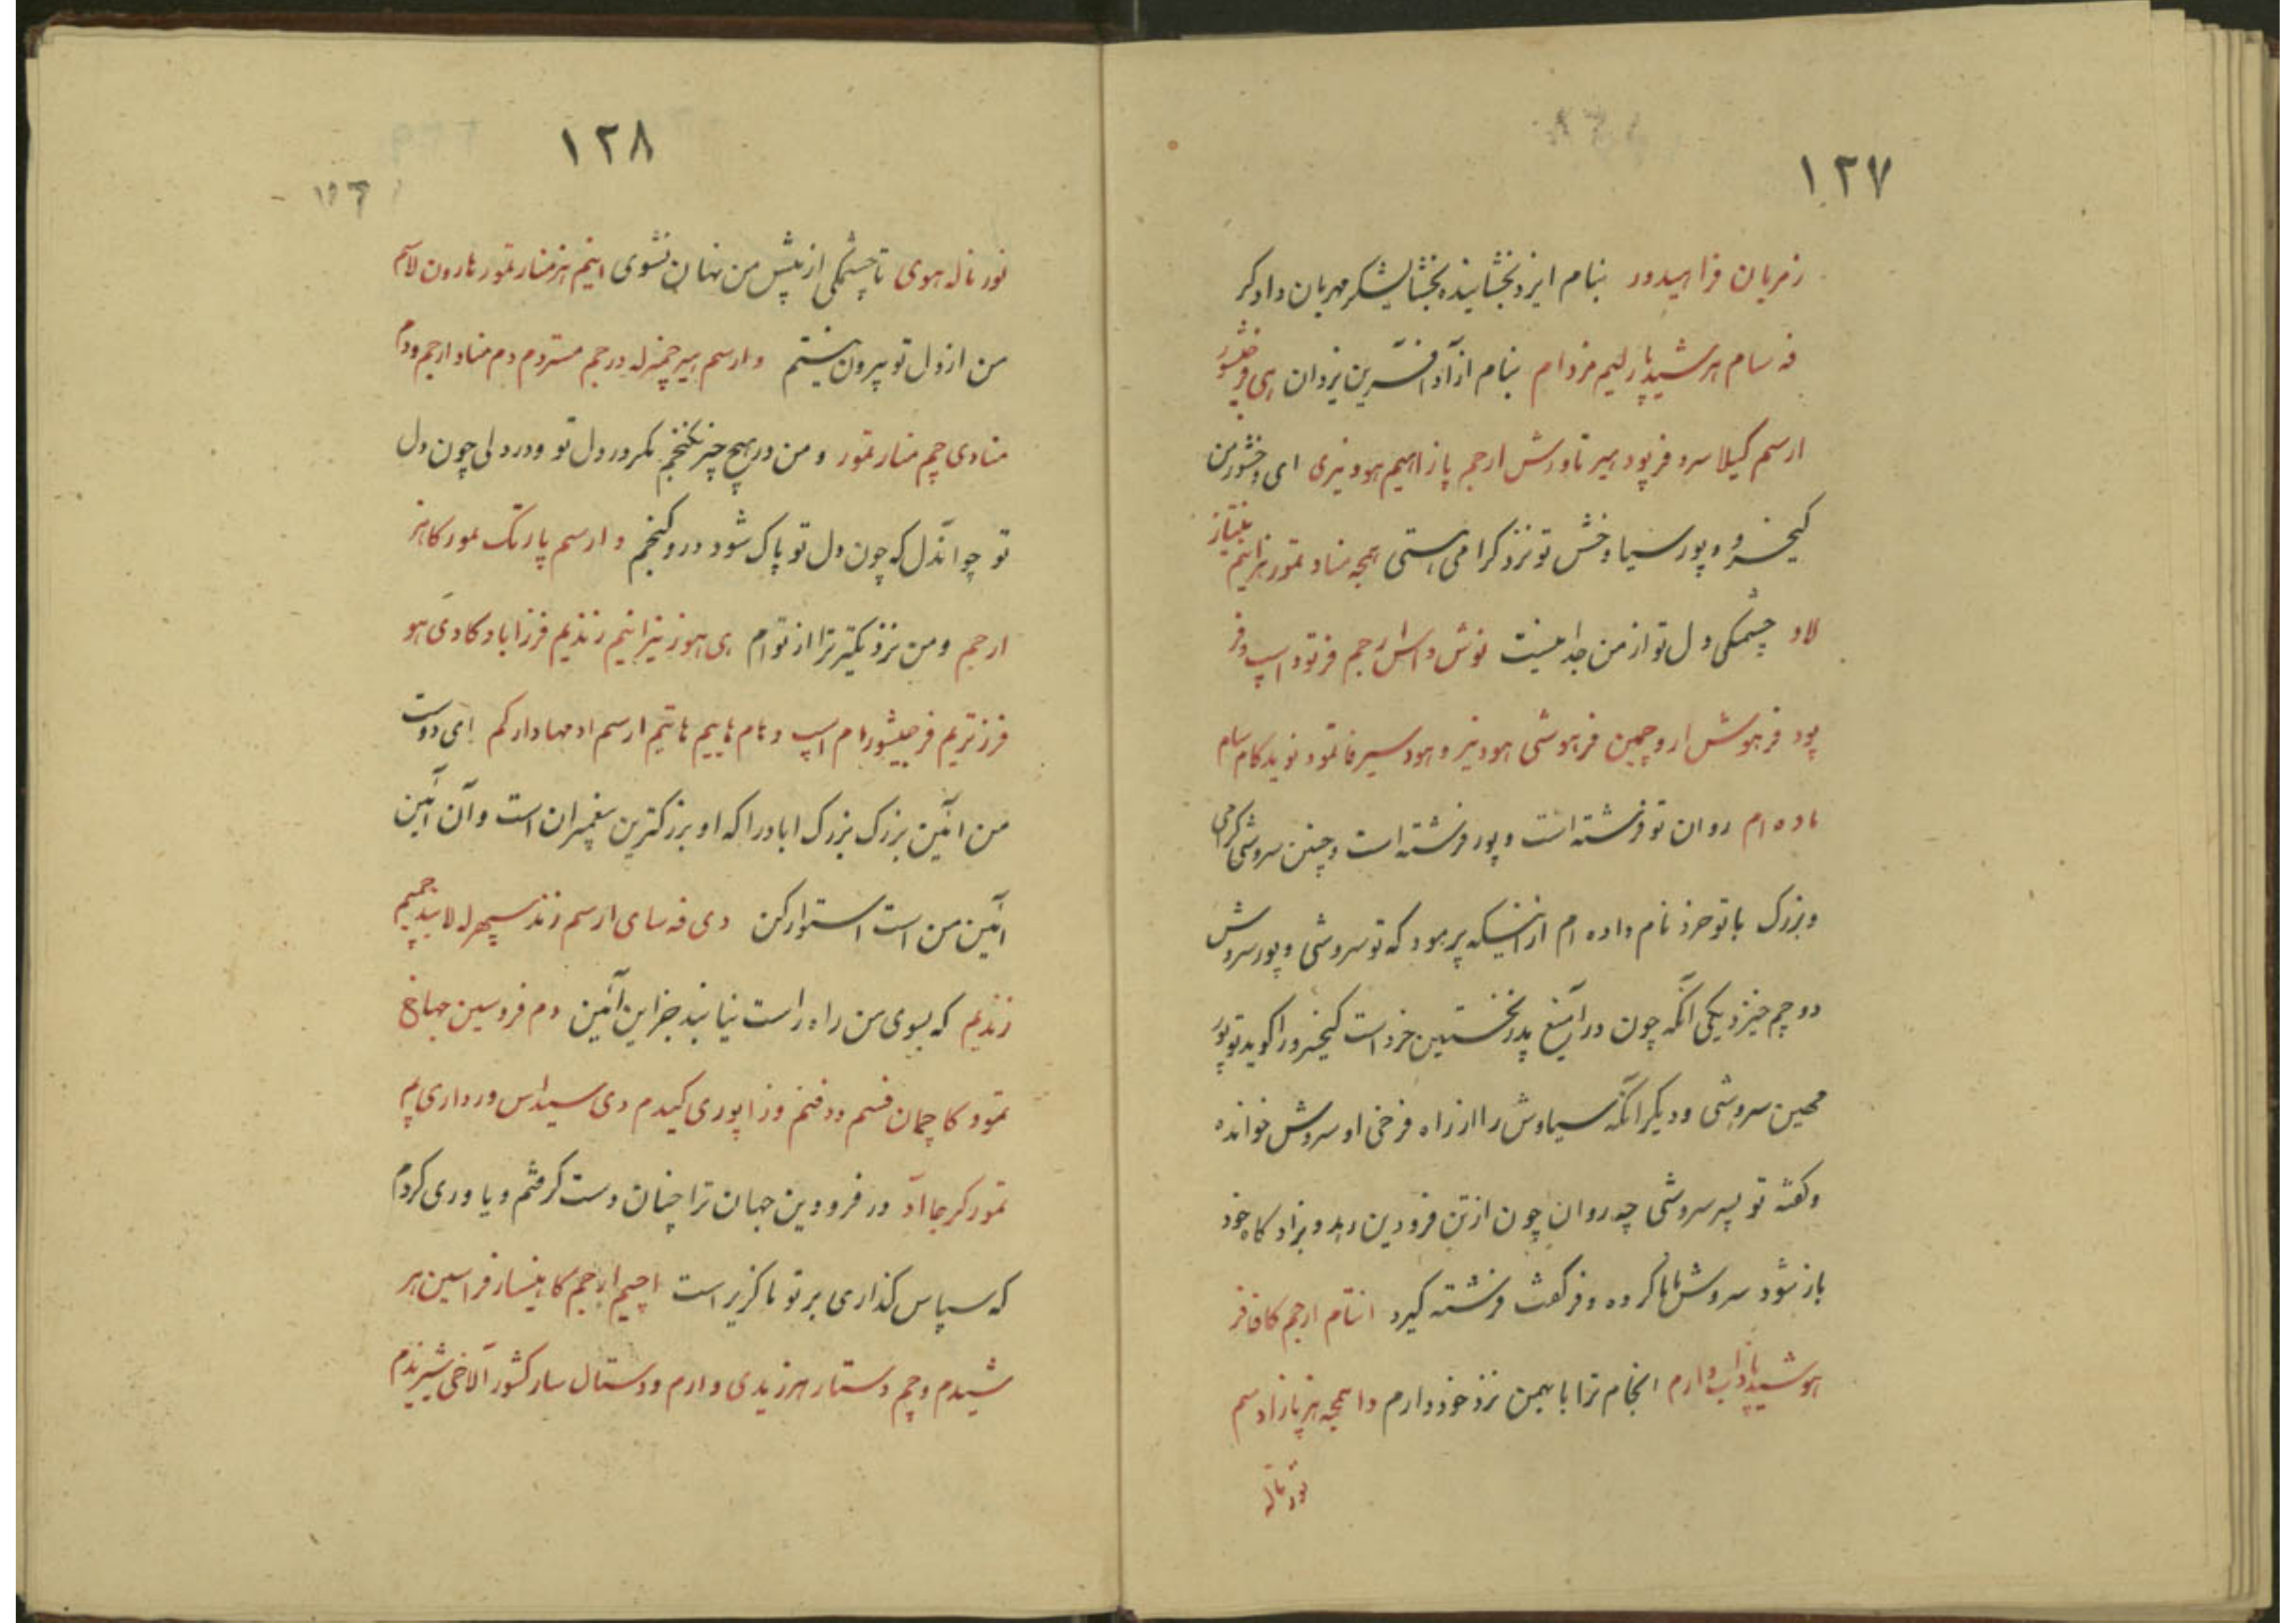 ۱۲۷
زمربان فراهیدور بنام ایزد بخشاینده بخشایشگر مهربان دادگر
فه سام هر شید پار لیم مزدام بنام ازآد آفرین یزدان هی فرخشور
ارسم کیلاسرو فرپود هیر تاورش ارجم پازاهیم هودنیری ای وخشور من
کیخسرو پور سیاوخش تو نزد گرامی هستی همچه مناد تمور هزاینم
لاد چشمکی دل تو از من جدا نیست نوش داس ارجم فرتود اسپ و فر
پود فرهوش اروچمین فرهوشی هودنیز و هود سیرفا تمود نوید کام سام
ماده ام روان تو فرشته است و پور فرشته است و چنین سروشی گرامی
و بزرگ با تو خرد نام داده ام از اینکه پرمود که تو سروشی و پور سروش
دو چم خیزد یکی آنکه چون در آمیغ پدر نخستین خرد است کیخسرو را گوید تو پور
مهین سروشی و دیگر آنکه سیاوش را از راه فرخی او سروش خوانده
و گفته تو پسر سروشی چه روان چون از تن فرودین رهد و بزادگاه خود
باز شود سروش نام کرده و فر گفت فرشته گیرد انتام ارجم کافا فر
هوشید پازاب وارم انجام ترا با بهمن نزد خود دارم وا همچه هنر پازاد سم
نورناله
۱۲۸
نورناله هوی تا چشمکی از پیش من نهان نشوی اینم هزمنار تمور هارون لاسم
من از دل تو بیرون نیستم و ارسم هیرچمزله درجم مستردم دم مناد ارجم ودم
منادی چم منار تمور و من در هیچ چیز نگنجم مگر در دل تو و در دلی چون دل
تو چو آندل که چون دل تو پاک شود درو گنجم و ارسم پارتک لمور کاهز
ارجم و من نزدیکتر ترا از توام هی هوز نیزانیم زندیم فرزاباد کادی هو
فرزتریم فرجیشورام اسپ و نام هاییم هایتم ارسم اد مهادار کم ای دوست
من آئین بزرگ بزرگ اباد را که او بزرگترین پیغمبران است و آن آئین
آئین من است استوار کن دی فه سای ارسم زند سپهرله لابید چمیم
زندیم که بسوی من راه راست نیابند جز این آئین دم فروسین جهاخ
تمود کا چمان فسم و دفنم وزاپوری کیدم دی سیداس ورداری پم
تمور کرجا اد در فرودین جهان ترا چنان دست گرفتم و یاوری کردم
که سپاس گذاری بر تو ناگزیر است اچیم ارجم کاهنیسار فراسین هر
شیدم و چم دستار هرزیدی و ارم و دستال سار کشور آلاخی شیرندم